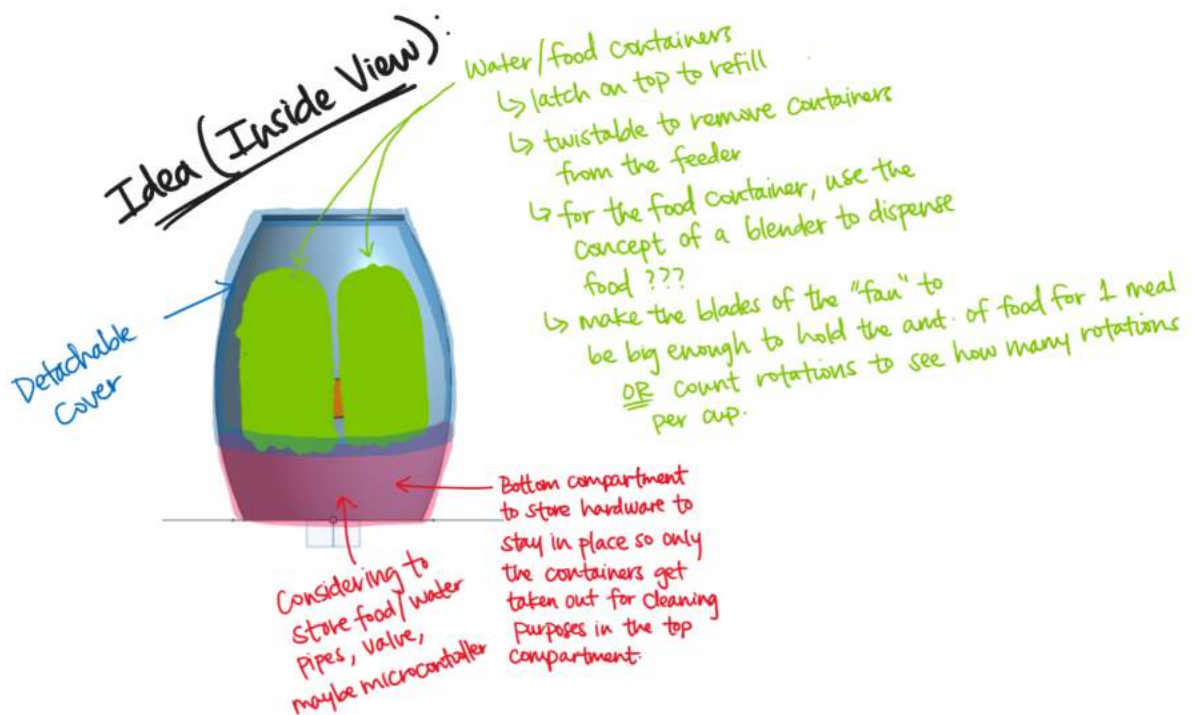 Idea (Inside View):
Water/food containers
↳ latch on top to refill
↳ twistable to remove containers
from the feeder
↳ for the food container, use the
concept of a blender to dispense
food ???
↳ make the blades of the "fan" to
be big enough to hold the amt. of food for 1 meal
OR count rotations to see how many rotations
per cup.
Detachable
cover
Bottom compartment
to store hardware to
stay in place so only
the containers get
taken out for cleaning
purposes in the top
compartment.
Considering to
store food/water
pipes, valve,
maybe microcontroller